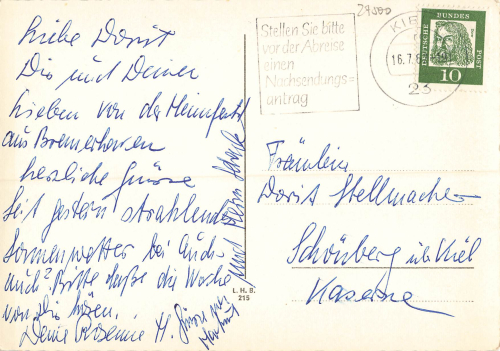 Liebe Dorit
Dir und Deinen
Lieben von der Heimfahrt
aus Bremerhaven
herzliche Grüsse
Seit gestern strahlendes
Sonnenwetter bei Euch
auch? Bitte die Woche
von Dir hören.
Deine H.
und
Gruss
29500
Stellen Sie bitte
vor der Abreise
einen
Nachsendungs=
antrag
KIE
16.7.6
23
DEUTSCHE BUNDESPOST
10
L. H. S.
215
Fräulein
Dorit Stellmacher
Schönberg üb. Kiel
Kaserne